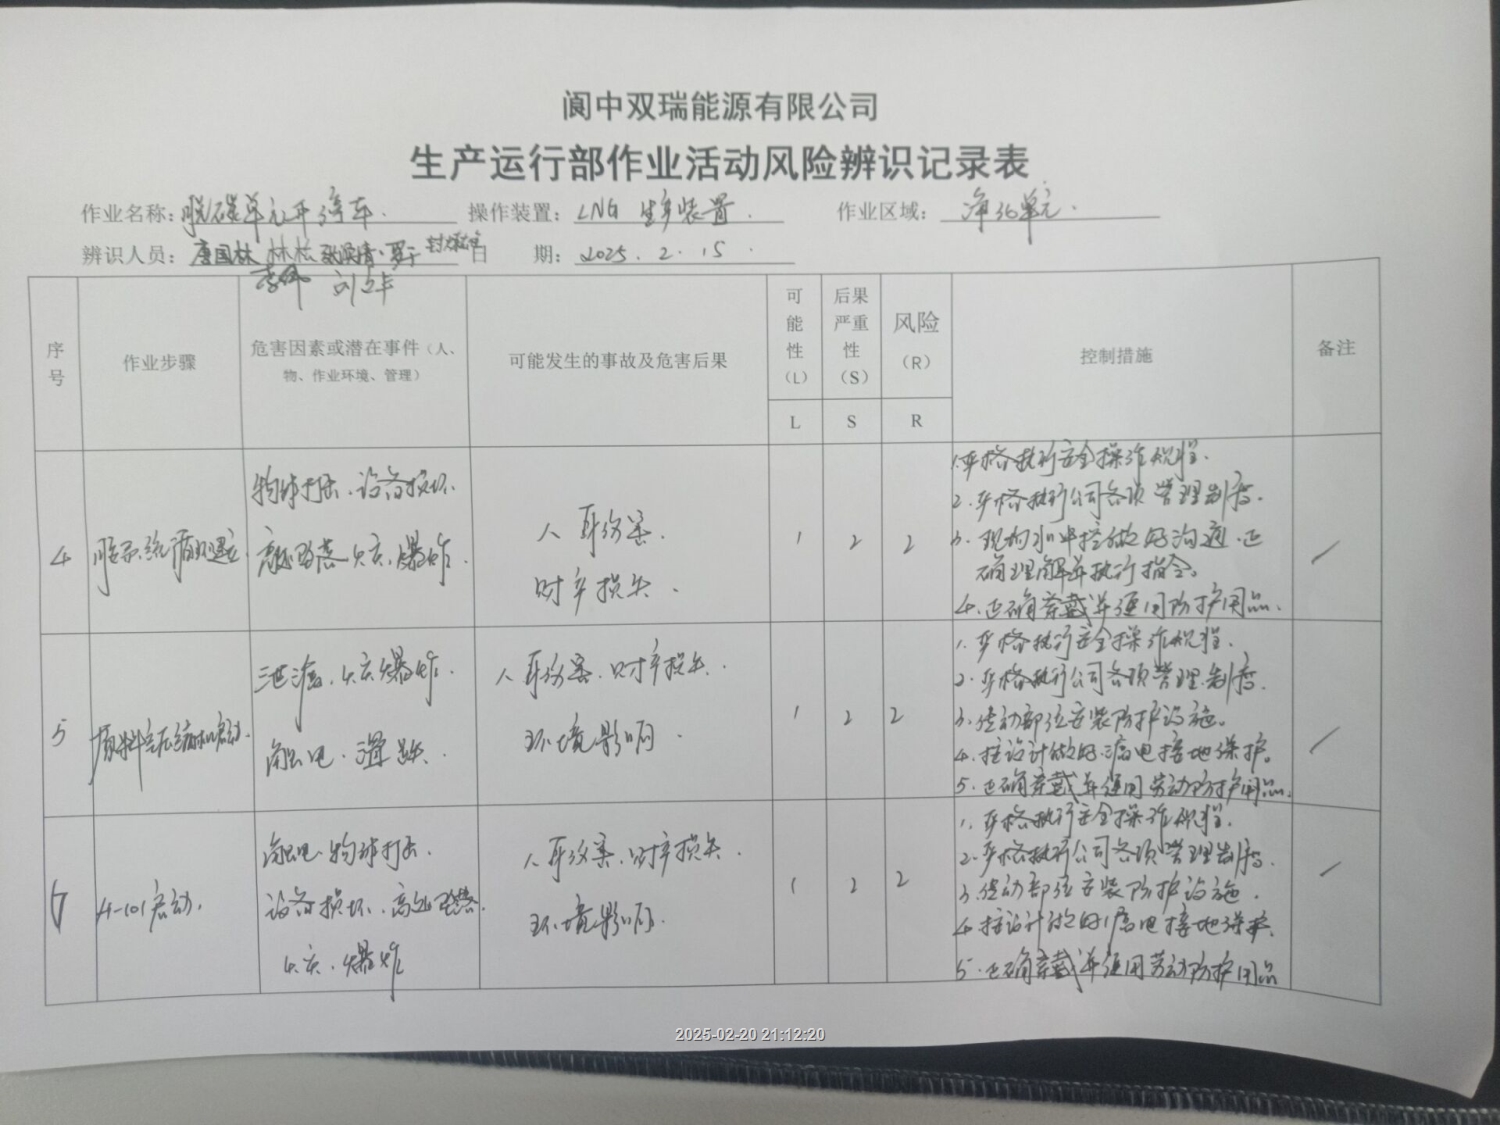 阆中双瑞能源有限公司
生产运行部作业活动风险辨识记录表
作业名称：脱碳单元开停车． 操作装置：LNG 生产装置． 作业区域：净化单元．
辨识人员：唐国林 林松 罗于 日 期：2025．2．15．
李伟 刘立华
序号 作业步骤 危害因素或潜在事件（人、物、作业环境、管理） 可能发生的事故及危害后果 可能性（L） 后果严重性（S） 风险（R） 控制措施 备注
L S R
4
物体打击．设备损坏．
高处坠落 火灾．爆炸．
人身伤害．
财产损失．
1 2 2
1.严格执行安全操作规程．
2.严格执行公司各项管理制度．
3.现场和中控做好沟通．正
确理解并执行指令。
4.正确穿戴并使用防护用品．
/
5 原料气压缩机启动．
泄漏．火灾爆炸．
触电．灼烫．
人身伤害．财产损失．
环境影响．
1 2 2
1.严格执行安全操作规程．
2.严格执行公司各项管理制度．
3.传动部位安装防护设施。
4.按设计做好漏电接地保护。
5.正确穿戴并使用劳动防护用品．
/
6 H-101启动．
触电．物体打击．
设备损坏．高处坠落．
火灾．爆炸
人身伤害．财产损失．
环境影响．
1 2 2
1.严格执行安全操作规程．
2.严格执行公司各项管理制度．
3.传动部位安装防护设施．
4.按设计做好漏电接地保护．
5.正确穿戴并使用劳动防护用品
/
2025-02-20 21:12:20